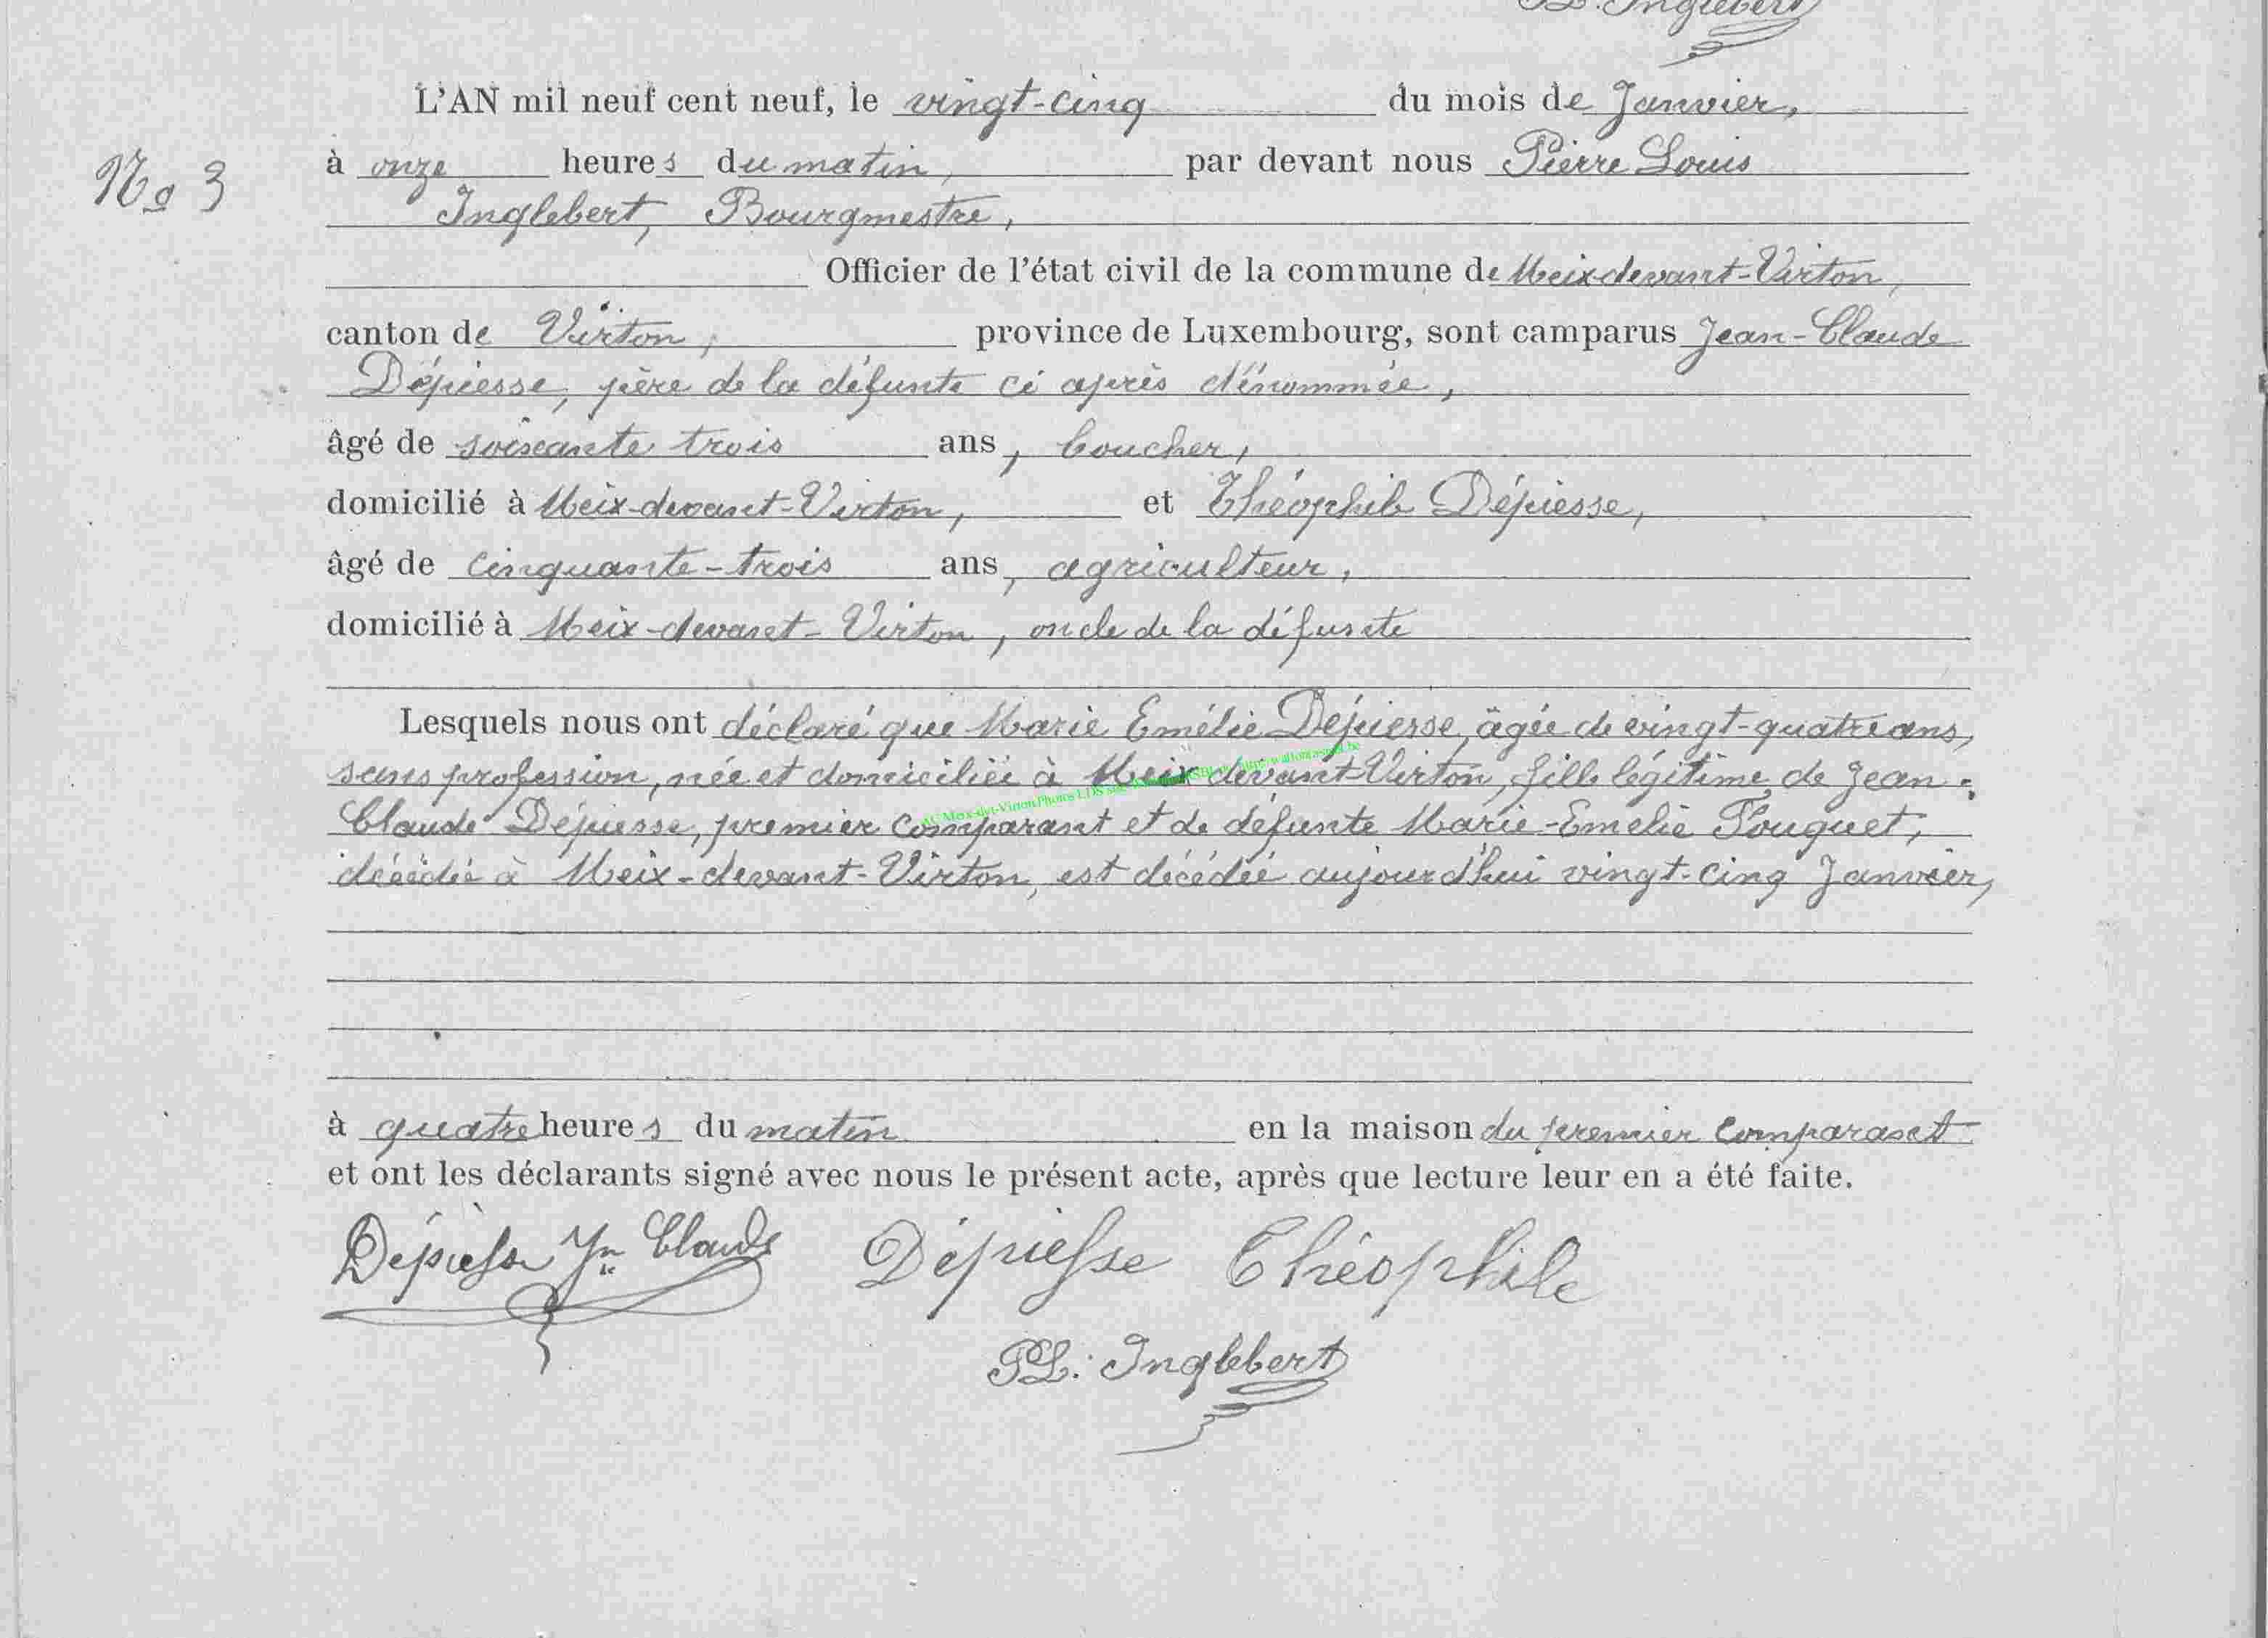 Inglebert
L'AN mil neuf cent neuf, le vingt-cinq du mois de Janvier,
No 3
à onze heures du matin, par devant nous Pierre Louis
Inglebert, Bourgmestre,
Officier de l'état civil de la commune de Meix-devant-Virton,
canton de Virton, province de Luxembourg, sont camparus Jean-Claude
Dépiesse, père de la défunte ci après dénommée,
âgé de soixante trois ans, boucher,
domicilié à Meix-devant-Virton, et Théophile Dépiesse,
âgé de cinquante-trois ans, agriculteur,
domicilié à Meix-devant-Virton, oncle de la défunte
Lesquels nous ont déclaré que Marie Emélie Dépiesse, âgée de vingt-quatre ans,
sans profession, née et domiciliée à Meix-devant-Virton, fille légitime de Jean-
Claude Dépiesse, premier comparant et de défunte Marie-Emelie Fouquet,
décédée à Meix-devant-Virton, est décédée aujourd'hui vingt-cinq Janvier,
à quatre heures du matin en la maison du premier comparant
et ont les déclarants signé avec nous le présent acte, après que lecture leur en a été faite.
Dépiesse Jn Claude Dépiesse Théophile
PL. Inglebert